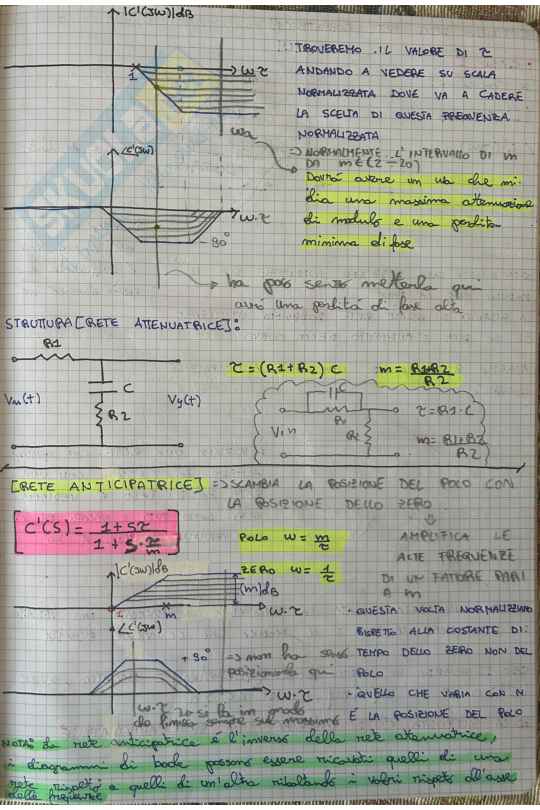 |C'(Jω)|dB
TROVEREMO IL VALORE DI τ
1
ω τ
ANDANDO A VEDERE SU SCALA
NORMALIZZATA DOVE VA A CADERE
LA SCELTA DI QUESTA FREQUENZA
NORMALIZZATA
ωa
∠C'(Jω)
⇒ NORMALMENTE L'INTERVALLO DI m
DA m ∈ (2 - 20)
Dovrò avere un ωa che mi
dia una massima attenuazione
di modulo e una perdita
minima di fase
ω·τ
-90°
ha poco senso metterla qui
avrò una perdita di fase alta
STRUTTURA [RETE ATTENUATRICE]:
R1
C
R2
Vin(t)
Vy(t)
τ = (R1+R2) C
m = R1+R2 / R2
C
R1
Vin
R2
τ = R1·C
m = R1+R2 / R2
[RETE ANTICIPATRICE] ⇒ SCAMBIA LA POSIZIONE DEL POLO CON
LA POSIZIONE DELLO ZERO
C'(S) = 1 + Sτ / 1 + S·τ/m
POLO ω = m/τ
ZERO ω = 1/τ
AMPLIFICA LE
ALTE FREQUENZE
DI UN FATTORE PARI
A m
|C'(Jω)|dB
(m)dB
1
m
ω·τ
∠C'(Jω)
+90°
⇒ non ha senso
posizionarla qui
ω·τ
· QUESTA VOLTA NORMALIZZIAMO
RISPETTO ALLA COSTANTE DI
TEMPO DELLO ZERO NON DEL
POLO
· QUELLO CHE VARIA CON N
È LA POSIZIONE DEL POLO
ω·τ si fa in modo
NOTA: La rete anticipatrice è l'inverso della rete attenuatrice,
i diagrammi di bode possono essere ricavati quelli di una
rete rispetto a quelli di un'altra ribaltando i valori rispetto all'asse
delle frequenze